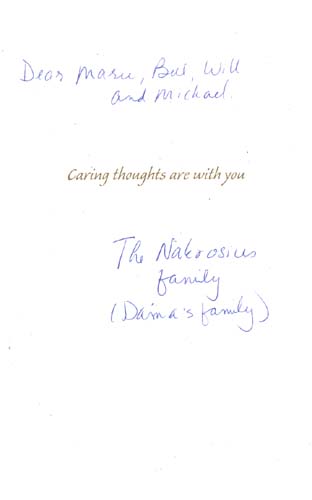 Dear Marie, Bill, Will
and Michael.
Caring thoughts are with you
The Nakrosius
family
(Daina's family)